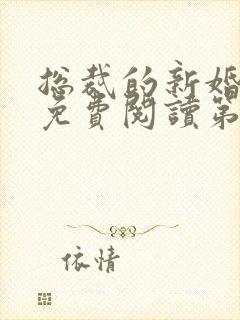 总裁的新婚
免費閱讀第
依情